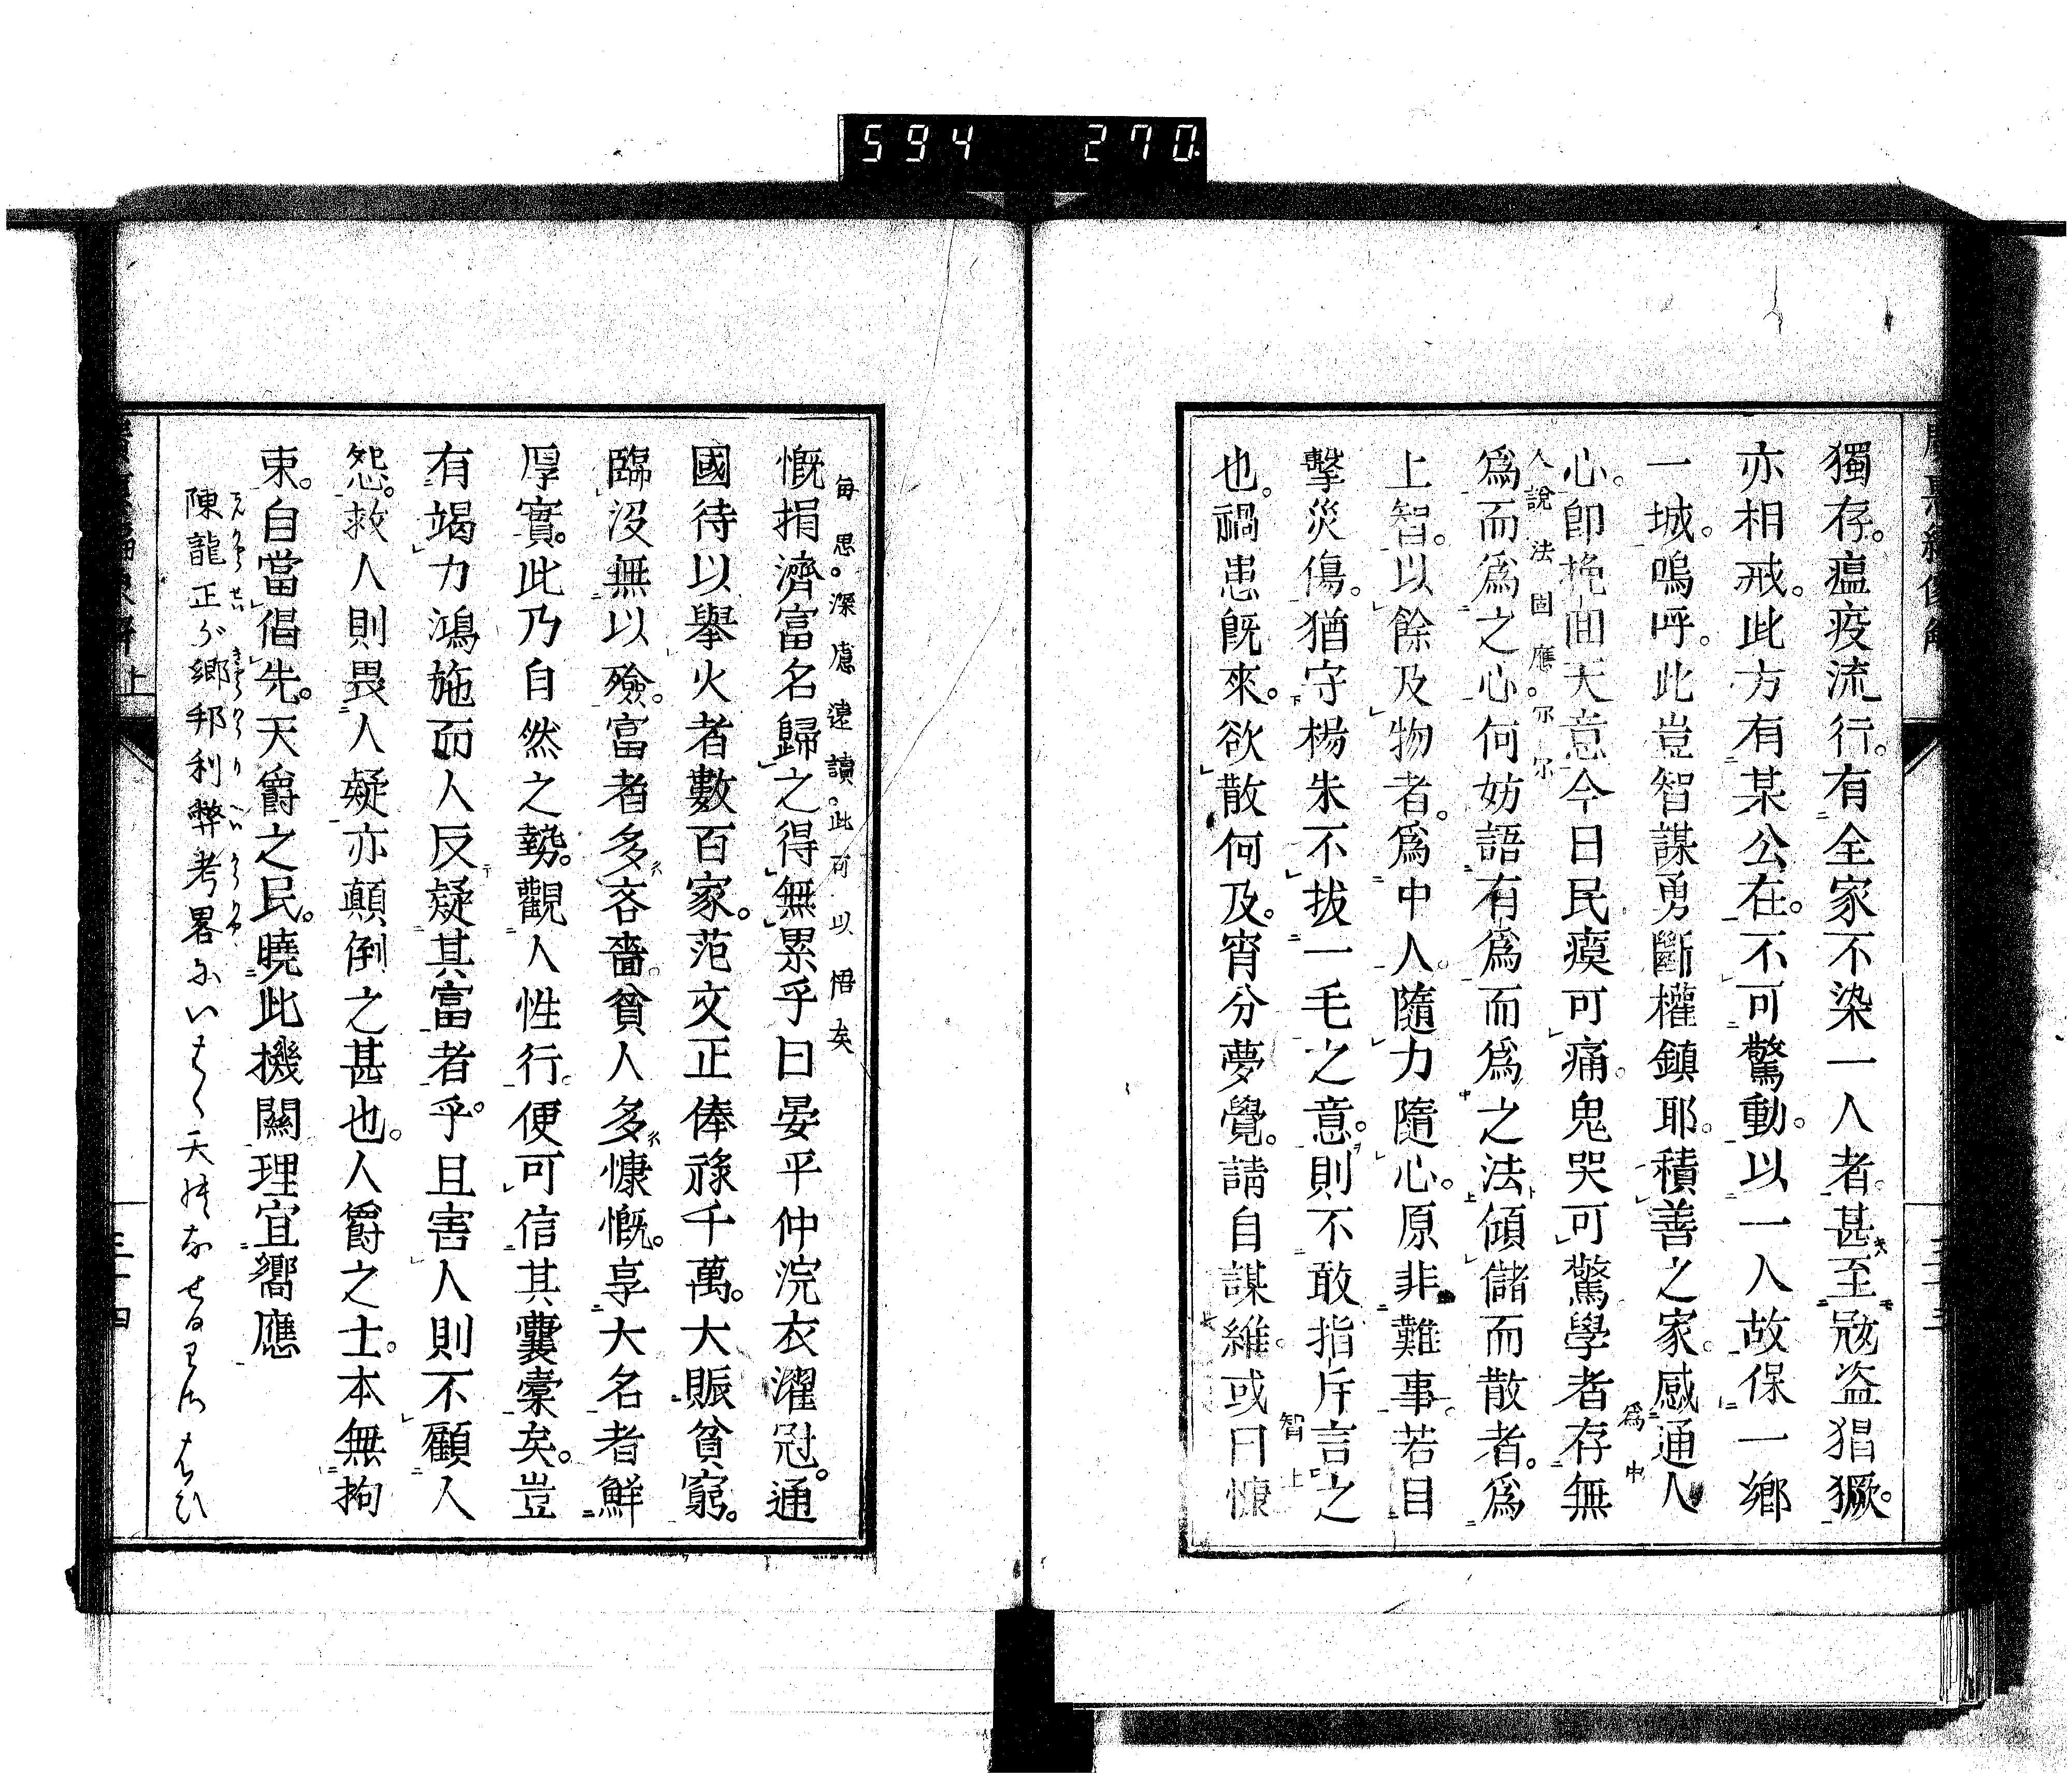 594 270
獨存。瘟疫流行。有全家不染一人者。甚至寇盗猖獗。
亦相戒。此方有某公在。不可驚動。以一人故保一鄉
一城。嗚呼。此豈智謀勇斷權鎮耶。積善之家。感通人
爲中
心。卽挽回天意今日民瘼可痛。鬼哭可驚學者存無
人說法固應。尓尓
爲而爲之心何妨語有爲而爲之法傾儲而散者。爲
上智。以餘及物者。爲中人。隨力隨心。原非難事。若目
擊災傷。猶守楊朱不拔一毛之意。則不敢指斥言之
智上
也。禍患旣來。欲散何及。宵分夢覺。請自謀維。或曰慷
毎思。深慮遠讀。此可以悟矣
慨捐濟富名歸之得無累乎曰晏平仲浣衣濯冠。通
國待以擧火者數百家。范文正俸祿千萬。大賑貧窮。
臨沒無以殮。富者多吝嗇。貧人多慷慨。享大名者鮮
厚實。此乃自然之勢。觀人性行。便可信其囊橐矣。豈
有竭力鴻施而人反疑其富者乎。且害人則不顧人
怨。救人則畏人疑亦顛倒之甚也。人爵之士。本無拘
束。自當倡先。天爵之民。曉此機關理宜嚮應
陳龍正が鄉邦利弊考畧にいはく天
上
三十四